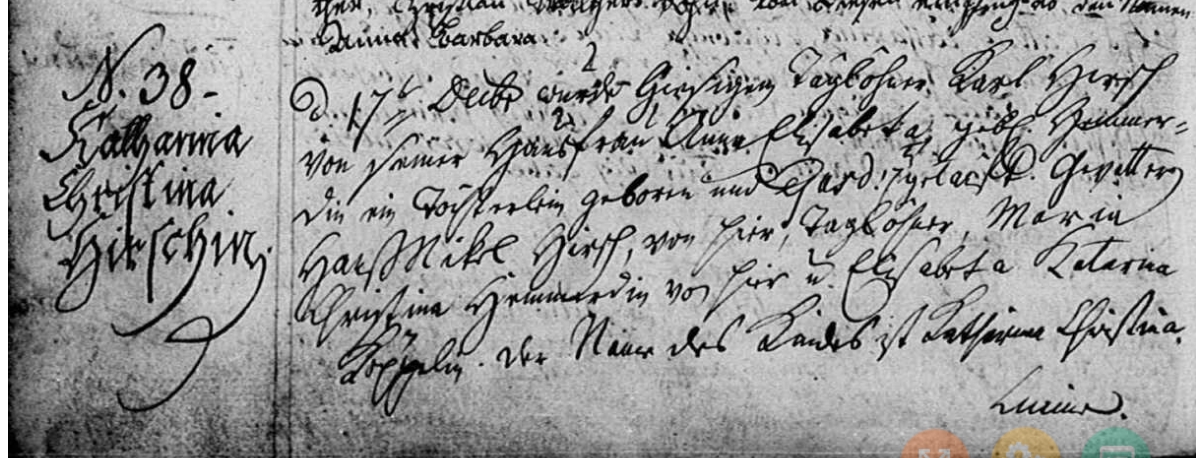 Christian
Anna Barbara.
N. 38 -
Katharina
Christina
Hirschin.
d. 17t Decbr wurde hiesigem Taglöhner Karl Hirsch
von seiner Hausfrau Anna Elisabeta, geb.
din ein Töchterlein geboren und getauft. Gevattern
Hanß Mikel Hirsch, von hier, Taglöhner, Maria
Christina Hemmerdin von hier u. Elisabeta Katarina
Der Name des Kindes ist Katharina Christina.